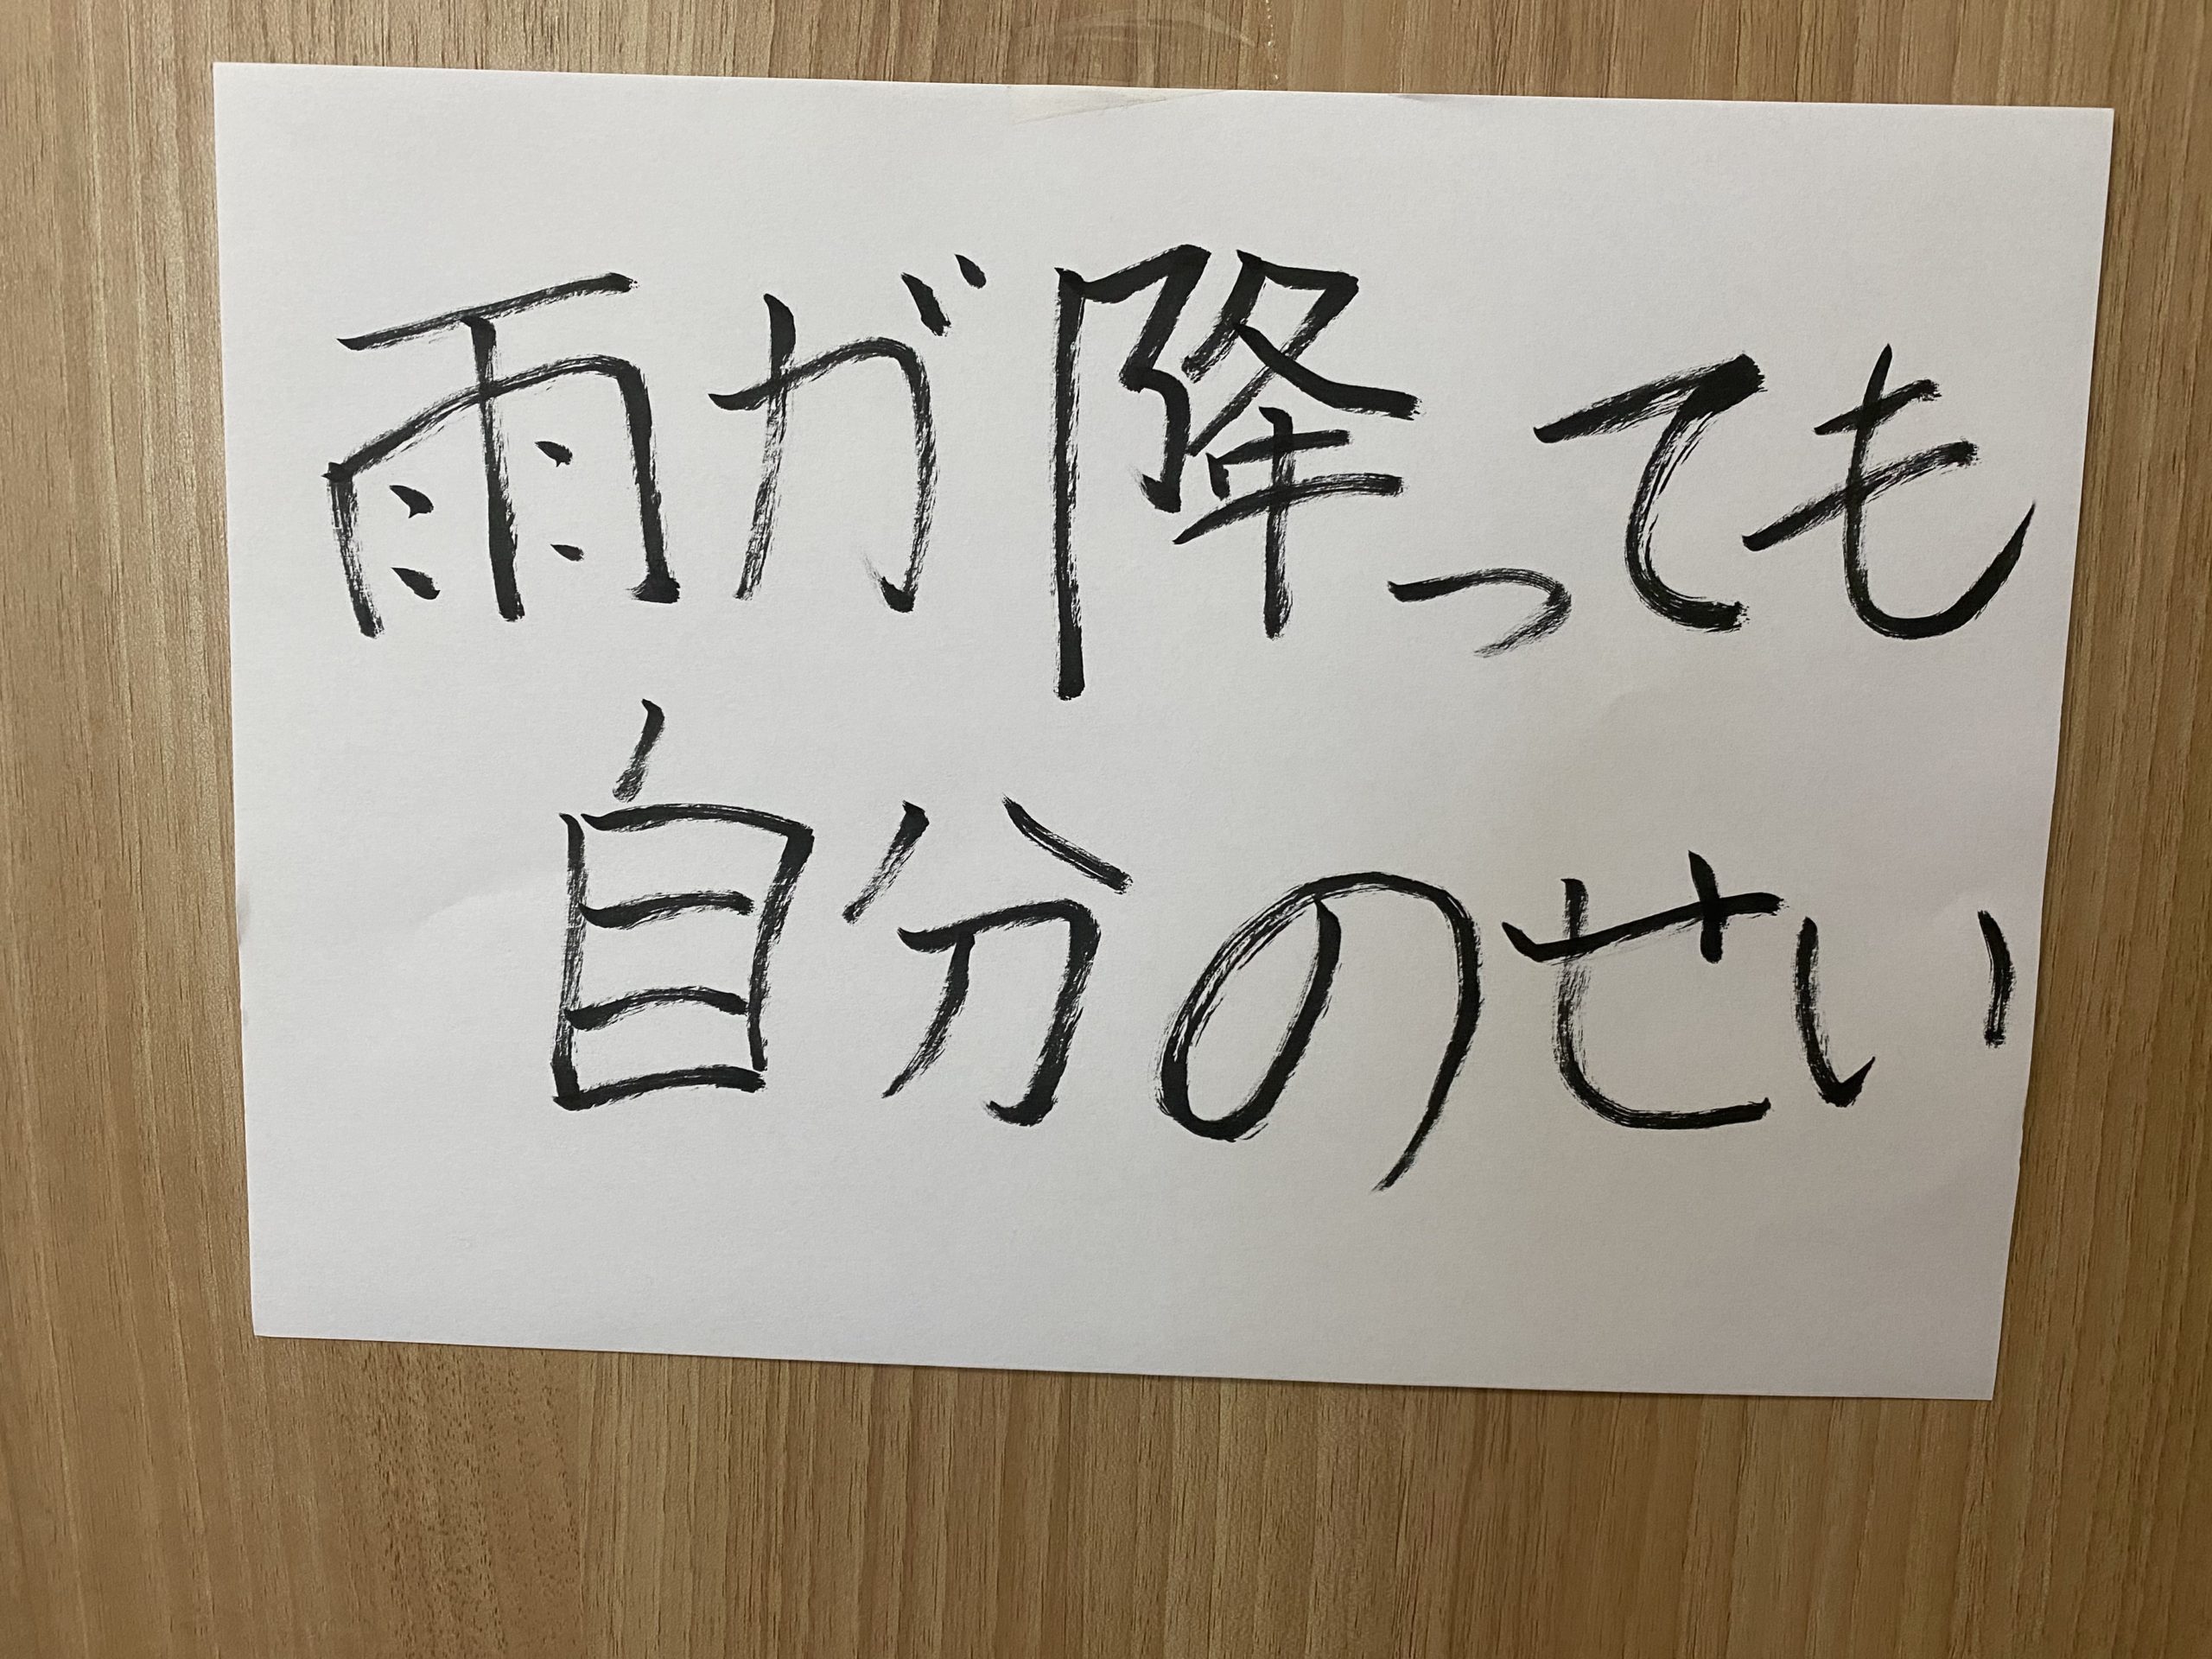 雨が降っても
自分のせい